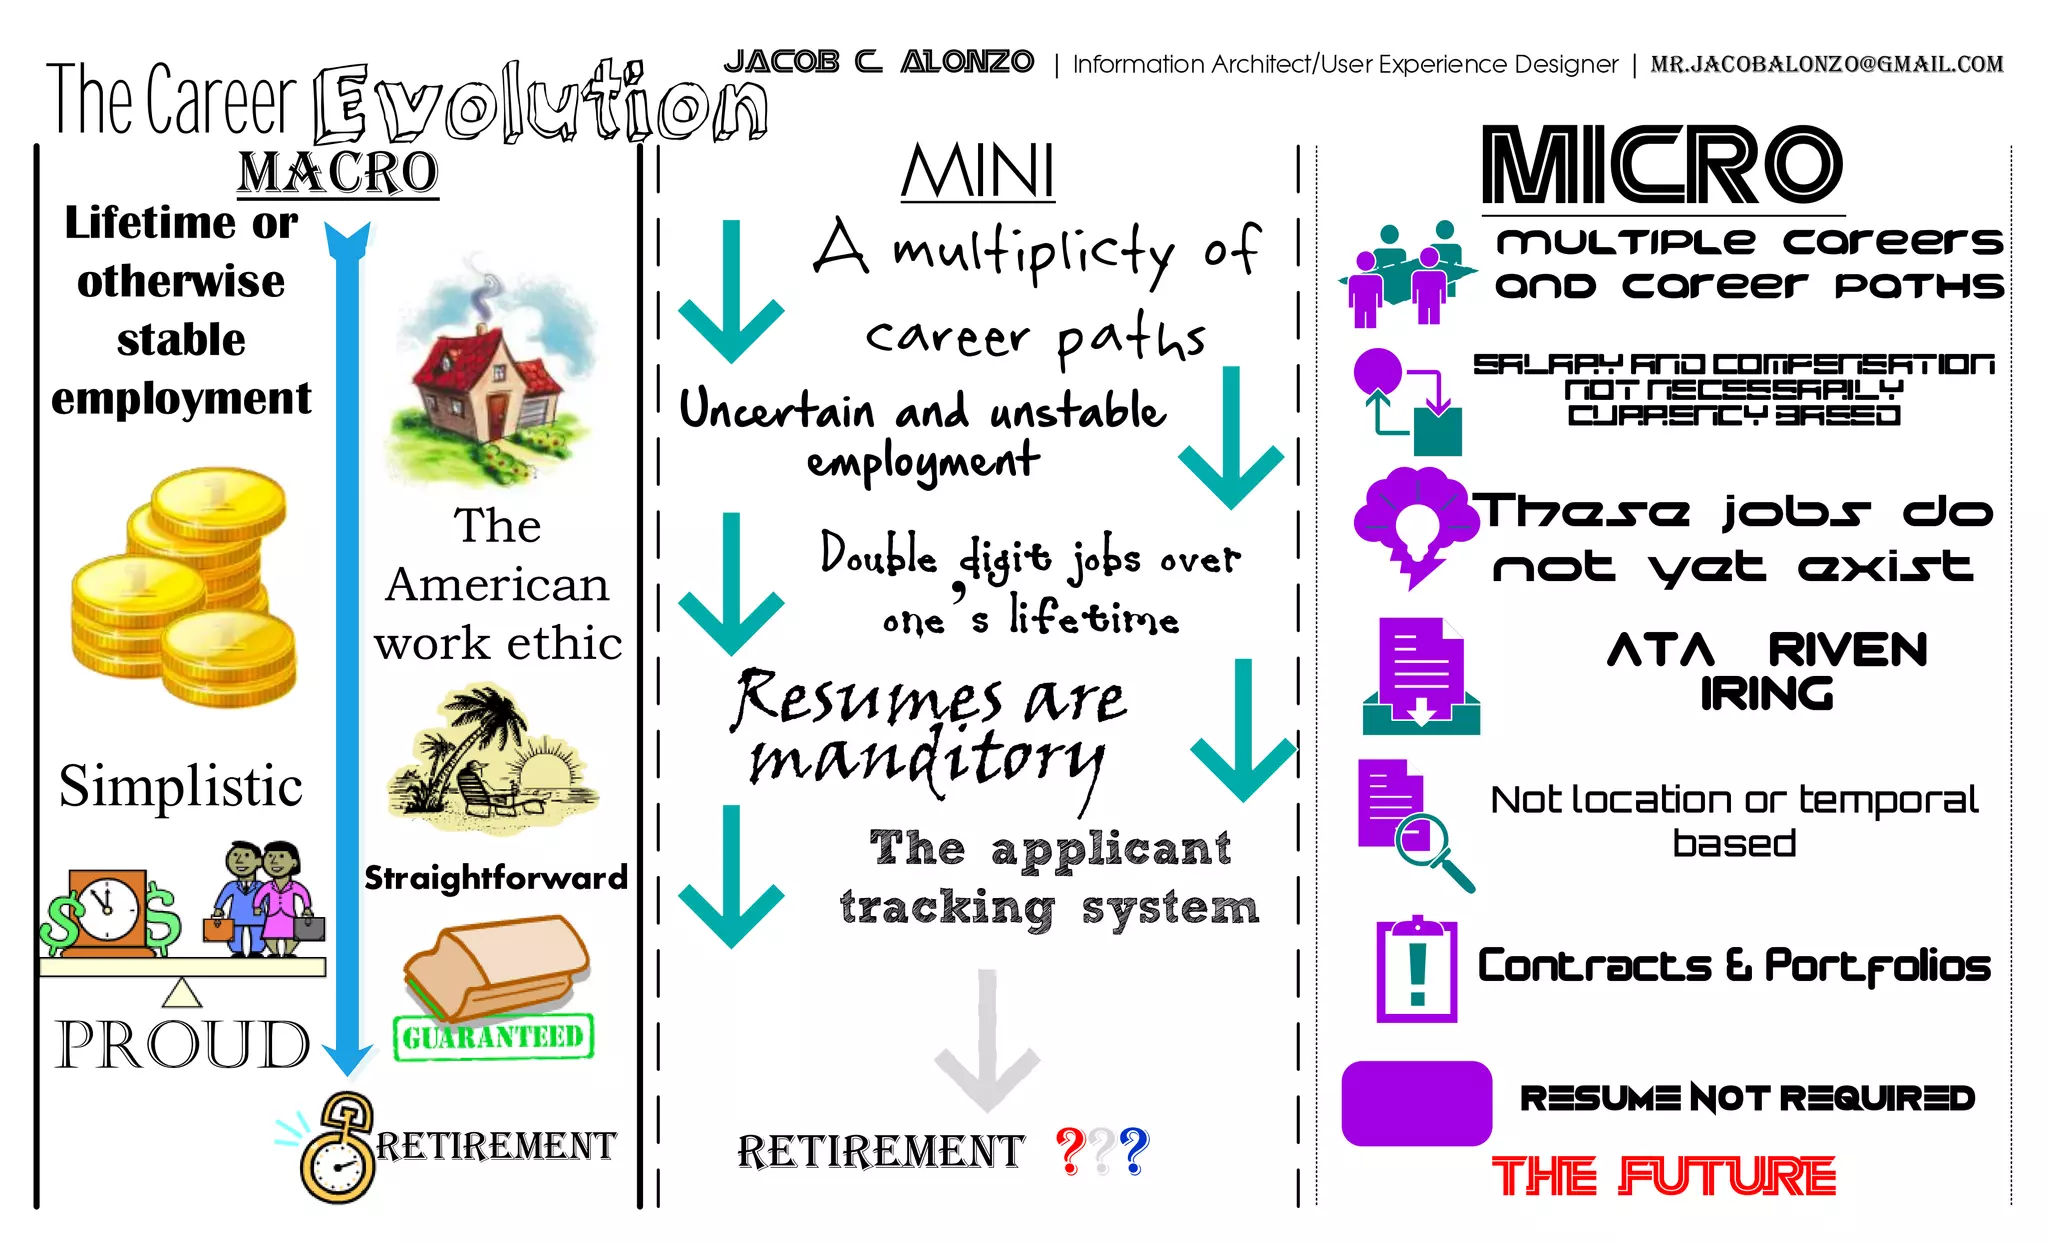 The Career Evolution
JACOB C ALONZO | Information Architect/User Experience Designer | MR.JACOBALONZO@GMAIL.COM
MACRO
Lifetime or
otherwise
stable
employment
The
American
work ethic
Simplistic
Straightforward
PROUD
GUARANTEED
RETIREMENT
MINI
A multiplicty of
career paths
Uncertain and unstable
employment
Double digit jobs over
one's lifetime
Resumes are
manditory
The applicant
tracking system
RETIREMENT ???
MICRO
MULTIPLE CAREERS
AND CAREER PATHS
SALARY AND COMPENSATION
NOT NECESSARILY
CURRENCY BASED
These jobs do
not yet exist
ATA RIVEN
IRING
Not location or temporal
based
Contracts & Portfolios
RESUME NOT REQUIRED
THE FUTURE